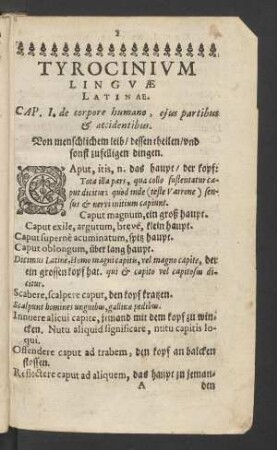 2
TYROCINIVM
LINGVÆ
LATINAE.
CAP. I. de corpore humano, ejus partibus
& accidentibus.
Von menschlichem leib/ dessen theilen/ vnd
sonst zufelligen dingen.
CAput, itis, n. das haupt/ der kopf:
Tota illa pars, qua collo sustentatur ca-
put dicitur: quòd inde (teste Varrone) sen-
sus & nervi initium capiunt.
Caput magnum, ein groß haupt.
Caput exile, argutum, breve, klein haupt.
Caput supernè acuminatum, spitz haupt.
Caput oblongum, über lang haupt.
Dicimus Latinè: Homo magni capitis, vel magno capite, der
ein grossen kopf hat. qui & capito vel capitosus di-
citur.
Scabere, scalpere caput, den kopf kratzen.
Scalpunt homines unguibus, gallinæ pedibus.
Innuere alicui capite, jemand mit dem kopf zu win-
cken. Nutu aliquid significare, nutu capitis lo-
qui.
Offendere caput ad trabem, den kopf an balcken
stossen.
Reflectere caput ad aliquem, das haupt zu jeman-
A den